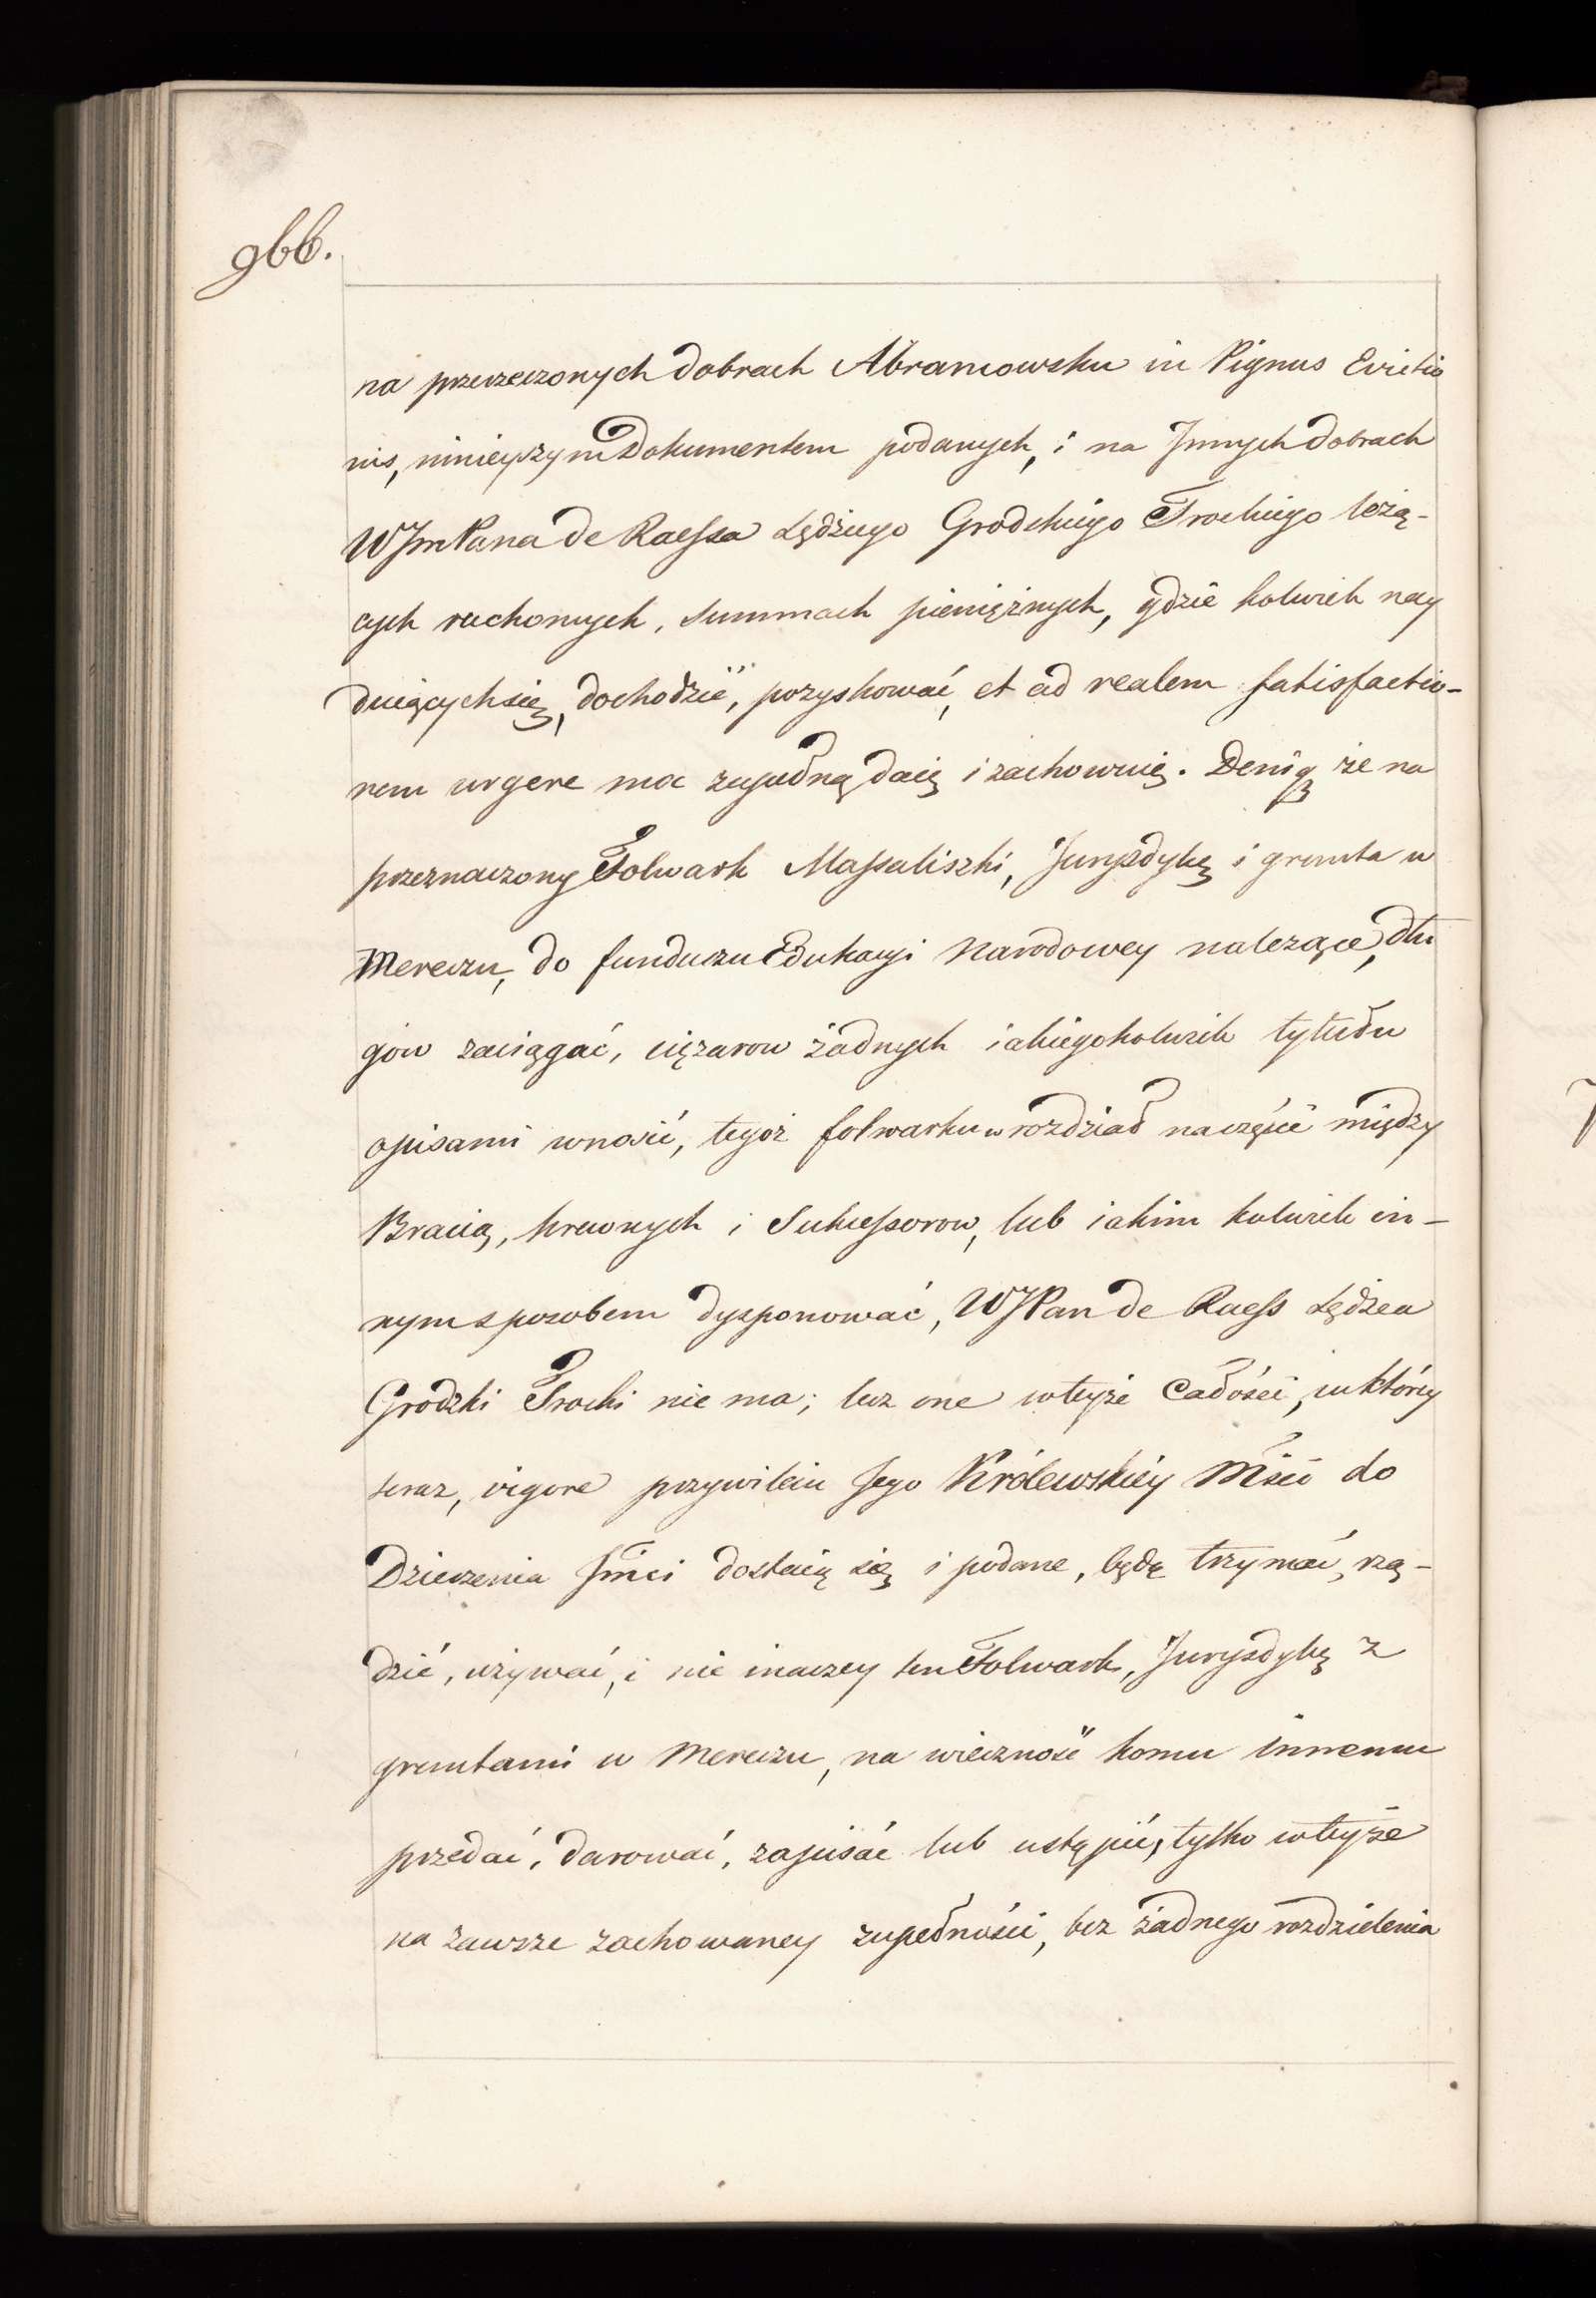 966.
na przerzeczonych dobrach Abramowsku in Pignus Evictio
nis, ninieyszym Dokumentem podanych, i na Innych dobrach
WJmPana de Raessa Sędziego Grodzkiego Trockiego leżą-
cych ruchomych, Summach pieniężnych, gdzie kolwiek nay
duiących się, dochodzić, pozyskować, et ad realem satisfactio-
nem urgere moc zupełną daię i zachowuię. Denię że na
przeznaczony Folwark Massaliszki, Juryzdykę i grunta w
Mereczu, do funduszu Edukacyi Narodowey należące, dłu
gow zaciągać, ciężarow żadnych iakiegokolwiek tytułu
opisami wnosić, tegoż folwarku w rozdział na części między
Bracią, krewnych i Sukcessorow, lub iakim kolwiek in-
nym sposobem dysponować, WJPan de Raess Sędzia
Grodzki Trocki nie ma; lecz one w teyże Całości, w ktorey
teraz, vigore przywileiu Jego Królewskiey Mści do
Dzierżenia Jmci dostaią się i podane, będą trzymać, rzą-
dzić, używać, i nie inaczey ten Folwark, Juryzdykę z
gruntami w Mereczu, na wieczność komu innemu
przedać, darować, zapisać lub ustąpić, tylko w teyże
na zawsze zachowaney zupełności, bez żadnego rozdzielenia